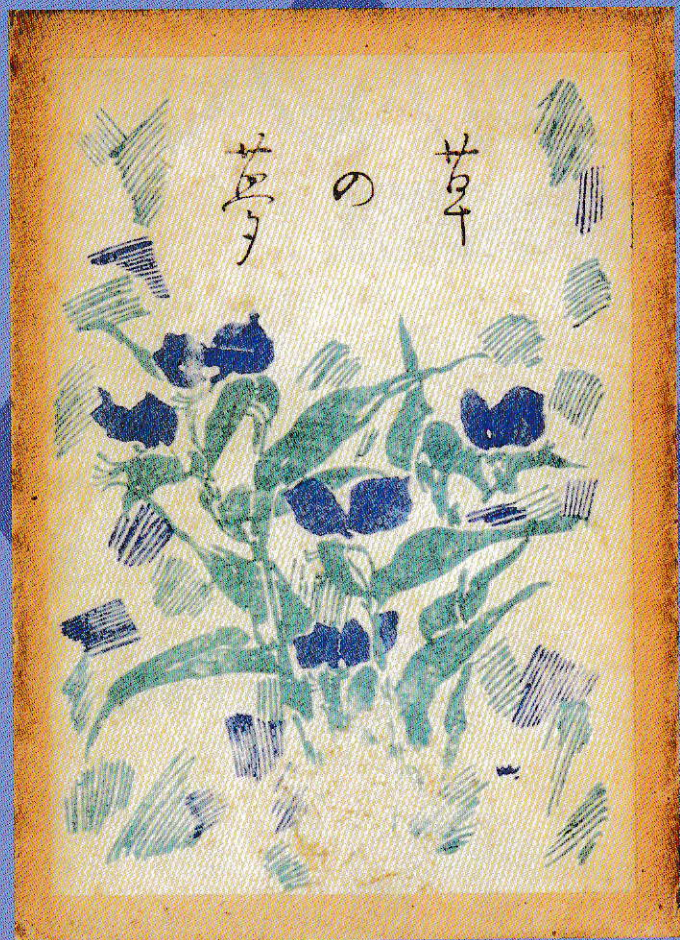 草の夢